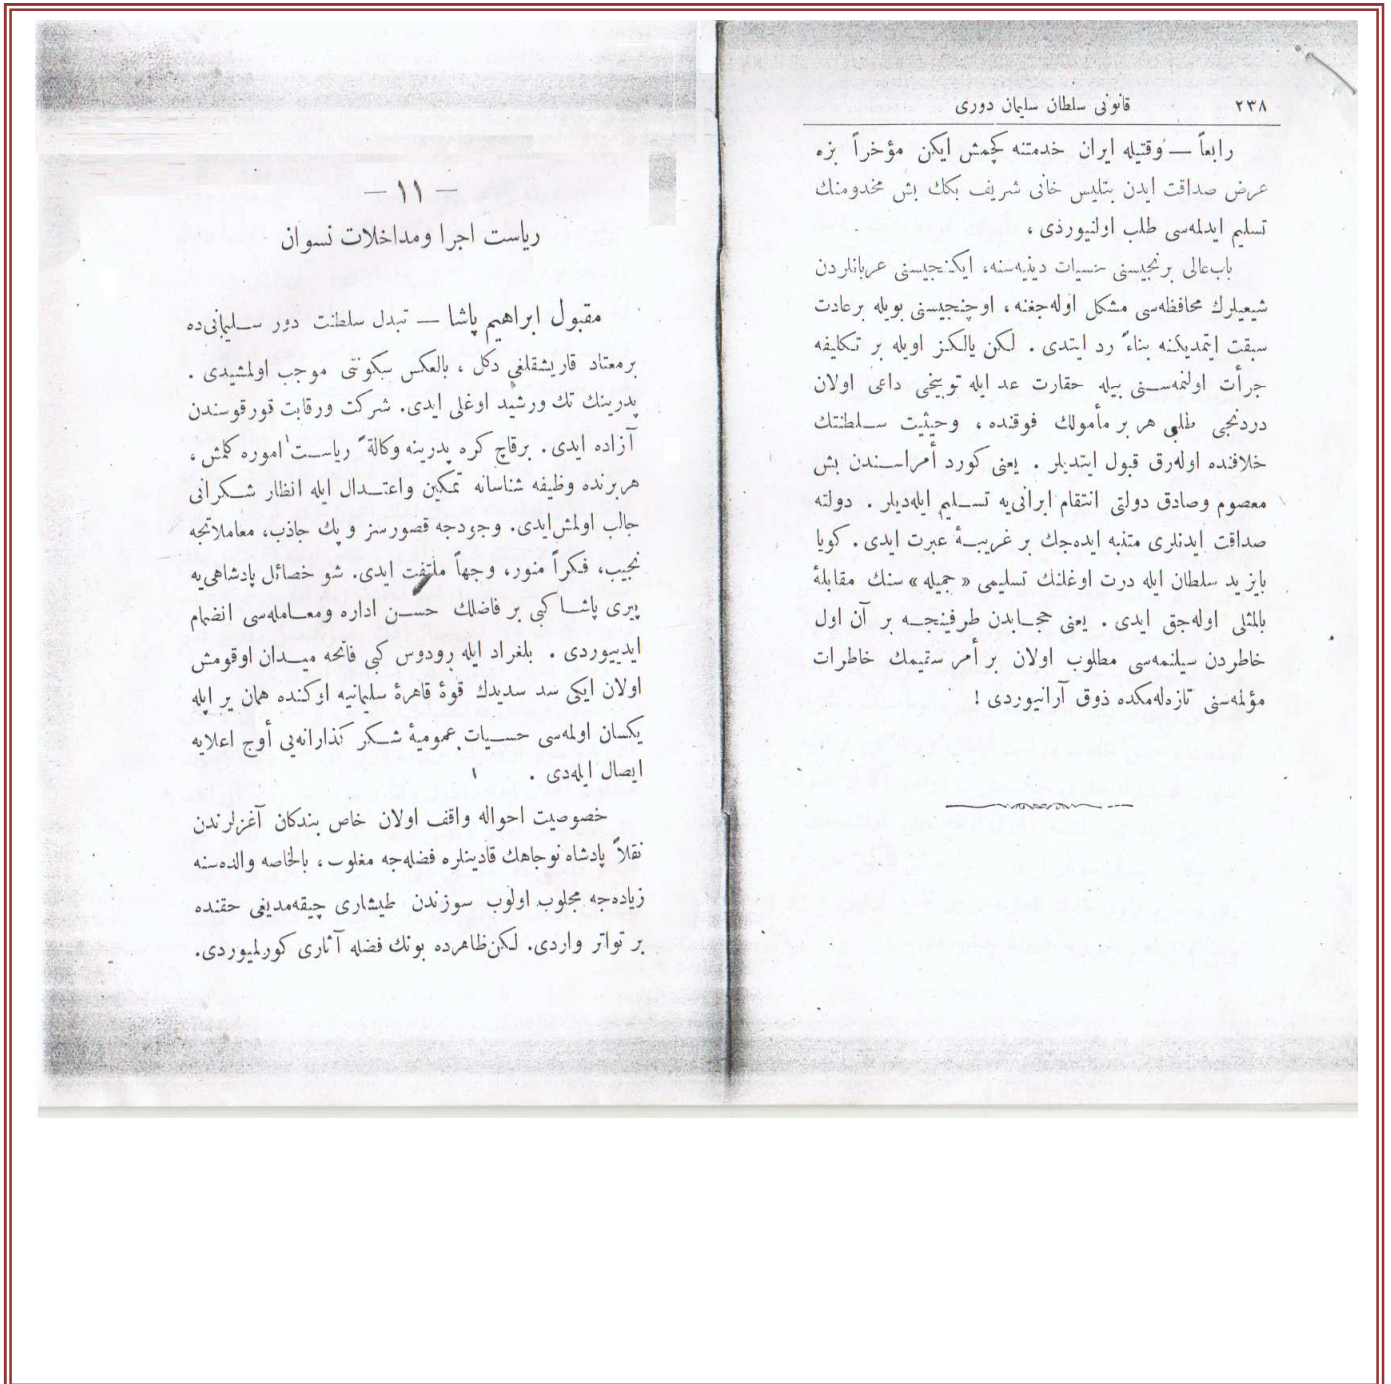 ٢٣٨ قانونی سلطان سلیمان دوری
رابعاً — وقتیله ایران خدمتنه کچمش ایکن مؤخراً بزه
عرض صداقت ایدن بتلیس خانی شریف بکك بش مخدومنك
تسلیم ایدلمه‌سی طلب اولنیوردی ،
باب‌عالی برنجیسنی حسیات دینیه‌سنه، ایکنجیسنی عربانلردن
شیعیلرك محافظه‌سی مشکل اوله‌جغنه ، اوچنجیسنی بویله برعادت
سبقت ایتمدیکنه بناءً رد ایتدی . لکن یالکز اویله بر تکلیفه
جرأت اولنمه‌سنی بیله حقارت عد ایله توبیخی داعی اولان
دردنجی طلبی هر بر مأمولك فوقنده ، وحیثیت سلطنتك
خلافنده اوله‌رق قبول ایتدیلر . یعنی کورد أمراسندن بش
معصوم وصادق دولتی انتقام ایرانی‌یه تسلیم ایله‌دیلر . دولته
صداقت ایدنلری متنبه ایده‌جك بر غریبهٔ عبرت ایدی . کویا
بایزید سلطان ایله درت اوغلنك تسلیمی «جمیله» سنك مقابلهٔ
بالمثلی اوله‌جق ایدی . یعنی حجابدن طرفینجه بر آن اول
خاطردن سیلنمه‌سی مطلوب اولان بر أمر ستیمك خاطرات
مؤلمه‌سنی تازه‌له‌مکده ذوق آرانیوردی !
— ١١ —
ریاست اجرا ومداخلات نسوان
مقبول ابراهیم پاشا — تبدل سلطنت دور سلیمانی‌ده
برمعتاد قاریشقلغی دکل ، بالعکس سکونتی موجب اولمشیدی .
پدرینك تك ورشید اوغلی ایدی. شرکت ورقابت قورقوسندن
آزاده ایدی. برقاچ کره پدرینه وکالةً ریاست اموره کلمش ،
هربرنده وظیفه شناسانه تمکین واعتدال ایله انظار شکرانی
جالب اولمش ایدی. وجودجه قصورسز و پك جاذب، معاملاتجه
نجیب، فکراً منور، وجهاً ملتفت ایدی. شو خصائل پادشاهی‌یه
پیری پاشا کبی بر فاضلك حسن اداره ومعامله‌سی انضمام
ایدییوردی . بلغراد ایله رودوس کبی فاتحه میدان اوقومش
اولان ایکی سد سدیدك قوهٔ قاهرهٔ سلیمانیه اوکنده همان یر ایله
یکسان اولمه‌سی حسیات عمومیهٔ شکر کذارانه‌یی أوج اعلایه
ایصال ایله‌دی .
خصوصیت احواله واقف اولان خاص بندکان آغزلرندن
نقلاً پادشاه نوجاهك قادینلره فضله‌جه مغلوب ، بالخاصه والده‌سنه
زیاده‌جه مجلوب اولوب سوزندن طیشاری چیقه‌مدیغی حقنده
بر تواتر واردی. لکن ظاهرده بونك فضله آثاری کورلمیوردی.